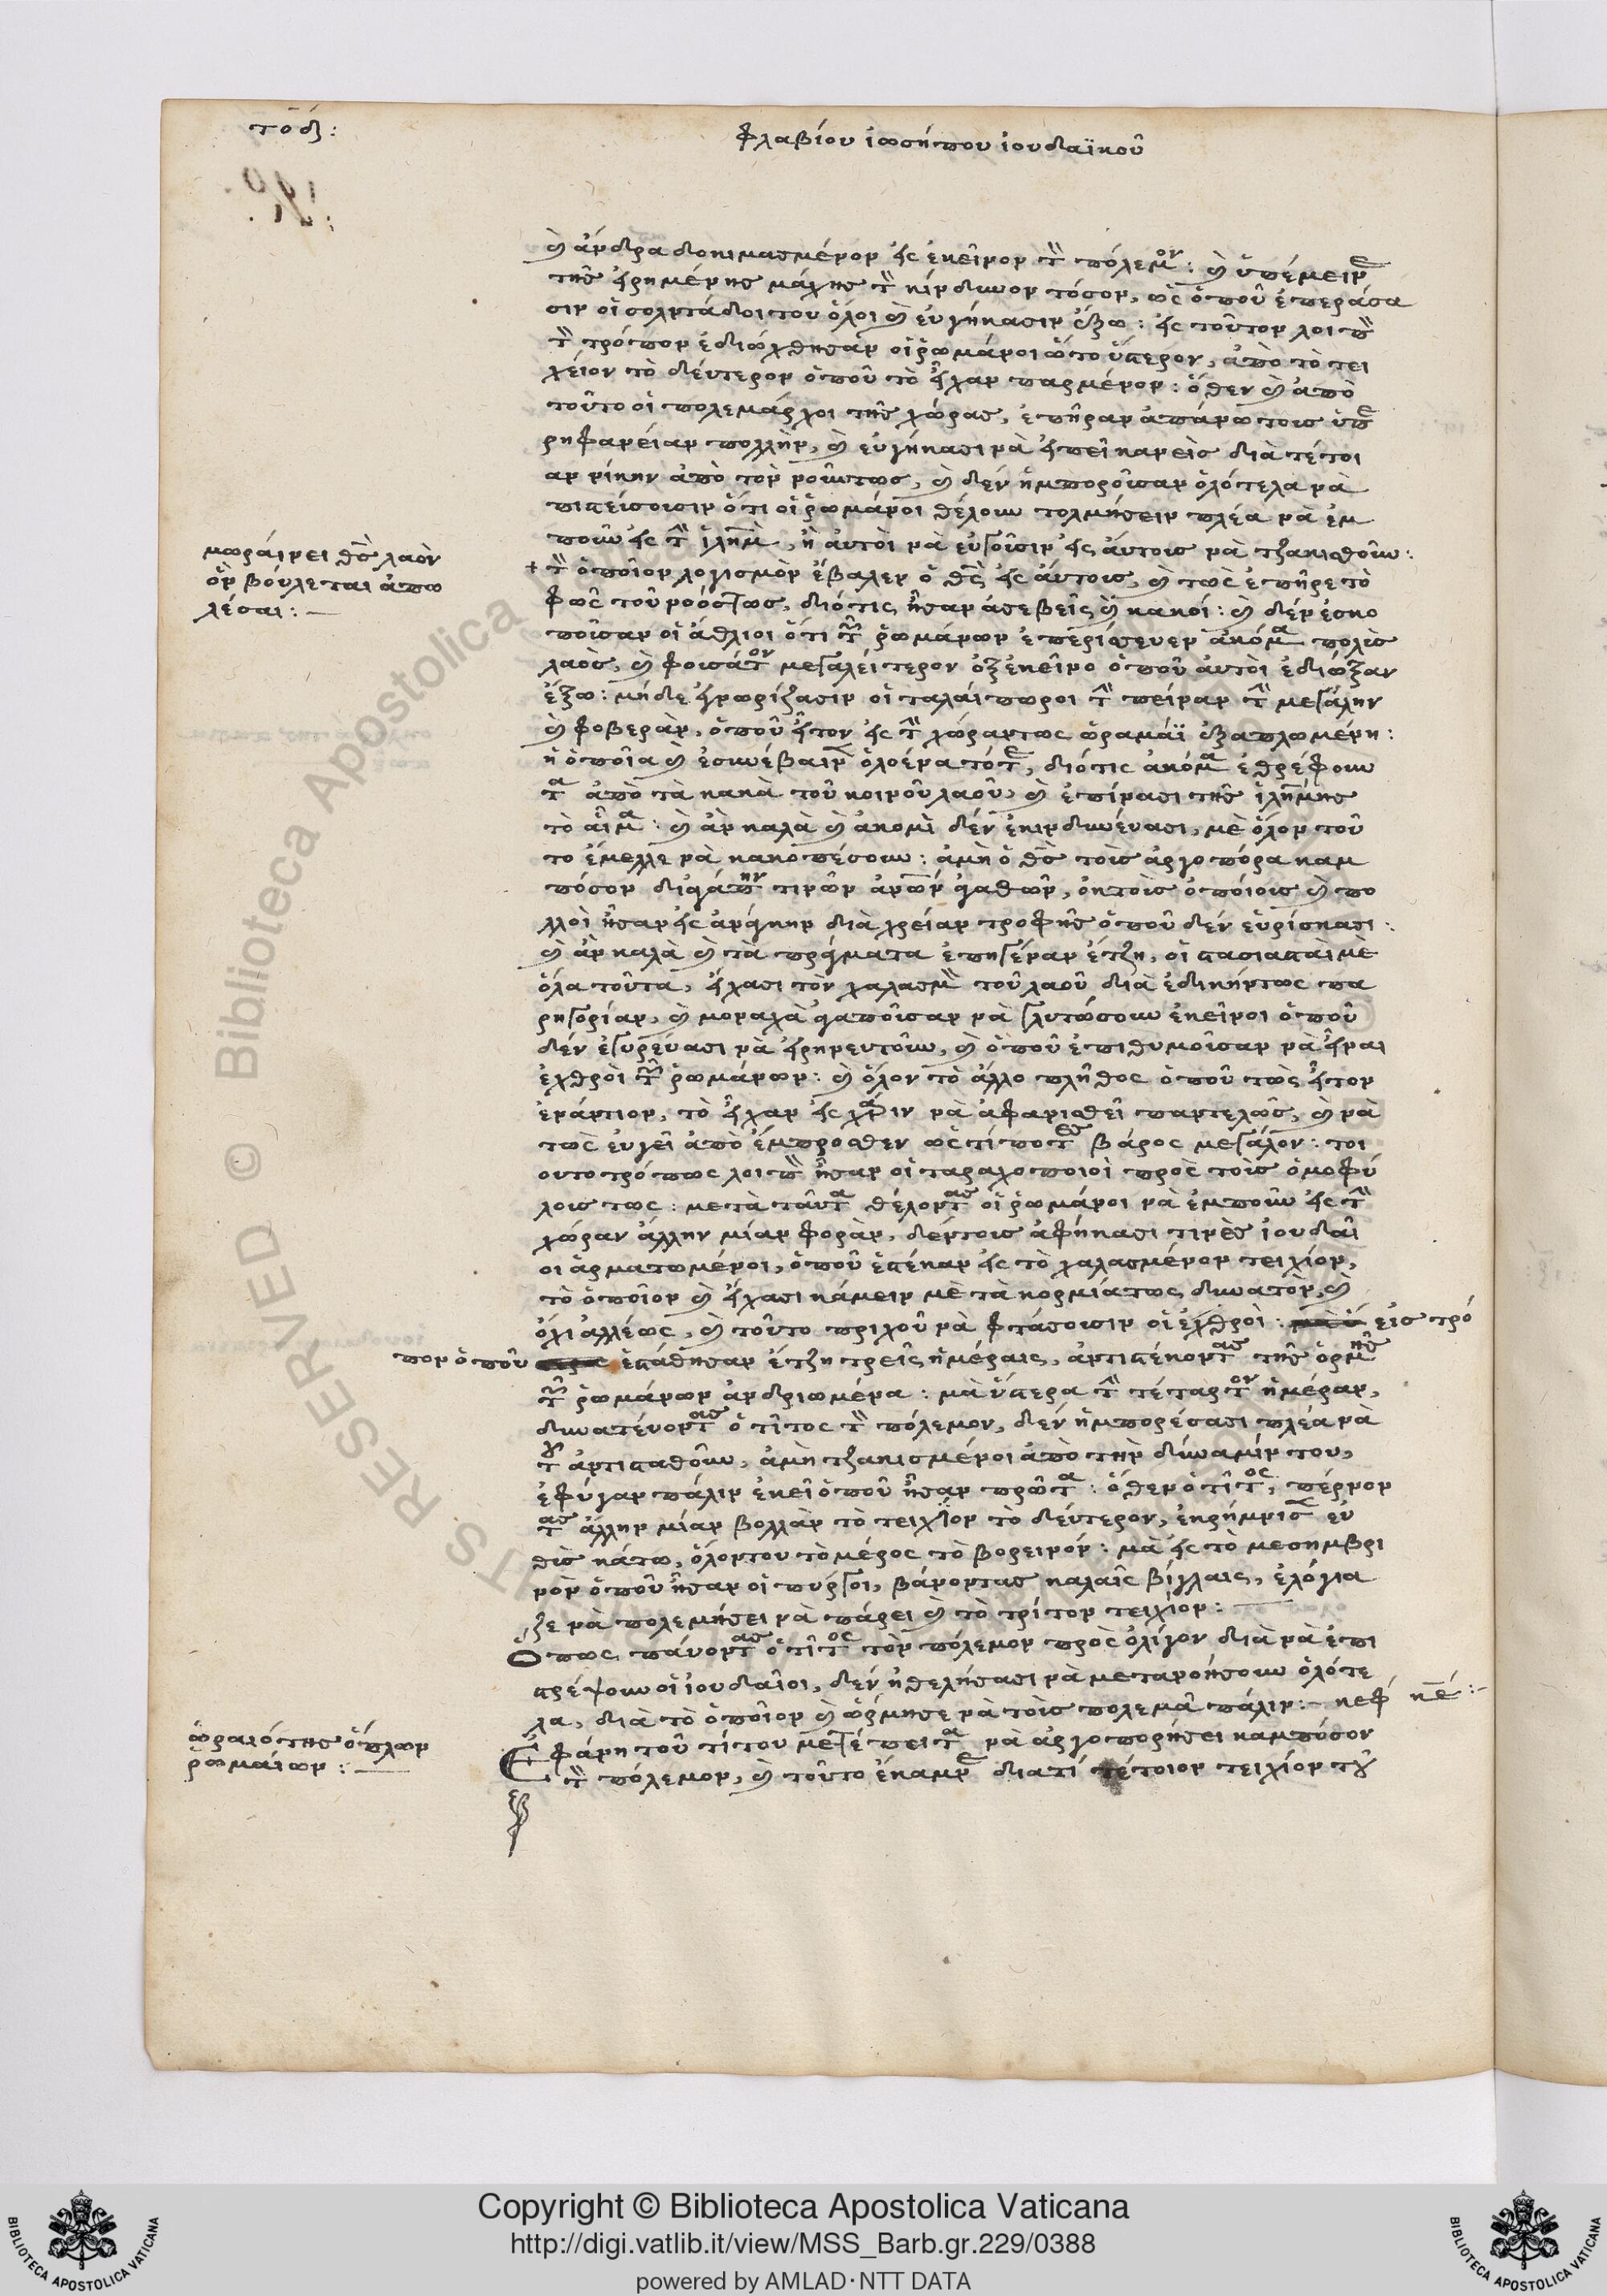 φλαβίου ἰωσήπου ἰουδαϊκοῦ
καὶ ἄνδρα δοκιμασμένον εἰς ἐκεῖνον τὸν πόλεμον: καὶ ὑπέμεινε
τῆς εἰρημένης μάχης τὸν κίνδυνον τόσον, ὡς ὁποῦ ἐπεράσα
σιν οἱ σολντάδοι του ὅλοι καὶ εὐγήκασιν ἔξω: εἰς τοῦτον λοιπὸν
τὸν τρόπον ἐδιώχθησαν οἱ ῥωμάνοι ὥστο ὕστερον, ἀπὸ τὸ τει
χείον τὸ δεύτερον ὁποῦ τὸ εἶχαν παρμένον: ὅθεν καὶ ἀπὸ
τοῦτο οἱ πολεμάρχοι τῆς χώρας, ἐπῆραν ἀπάνω τοις ὑπε
ρηφανείαν πολλὴν, καὶ εὐγήκασι νὰ εἰπεῖ κανεὶς διὰ τέτοι
αν νίκην ἀπὸ τὸν νοῦν τως, καὶ δὲν ἠμποροῦσαν ὁλότελα νὰ
πιστεύσουσιν ὅτι οἱ ῥωμάνοι θέλουν τολμήσειν πλέα νὰ ἐμ
ποῦν εἰς τὴν ἱλημ, ἢ αὐτοὶ νὰ εὐγοῦσιν εἰς αὐτοις νὰ τζακισθοῦν:
μωραίνει θς λαὸν
ὃν βούλεται ἀπω
λέσαι:
+ τὸν ὁποῖον λογισμὸν ἔβαλεν ὁ θς εἰς αὐτοις, καὶ τῶς ἐπῆρε τὸ
φῶς τοῦ νοός τως, διότις ἦσαν ἀσεβεῖς καὶ κακοί: καὶ δὲν ἐσκο
ποῦσαν οἱ ἄθλιοι ὅτι τῶν ῥωμάνων ἐπερίσευεν ἀκόμα πολὺς
λαὸς, καὶ φουσάτον μεγαλείτερον ὀξ ἐκεῖνο ὁποῦ αὐτοὶ ἐδιώξαν
ἔξω: μήδε ἐγνωρίζασιν οἱ ταλαίπωροι τὴν πείναν τὴν μεγάλην
καὶ φοβερὰν, ὁποῦ ἦτον εἰς τὴν χώραν τως ὡραμάϊ ἐξαπλωμένη:
ἡ ὁποῖα καὶ ἐσυνέβαινε ὁλοένα τότε, διότις ἀκόμα ἐθρέφουν
τα ἀπὸ τὰ κακὰ τοῦ κοινοῦ λαοῦ, καὶ ἐπίνασι τῆς ἱλήμης
τὸ αἷμα: καὶ ἂν καλὰ καὶ ἀκομὶ δὲν ἐκινδυνεύασι, μὲ ὅλον τοῦ
το ἔμελλε νὰ κακοπέσουν: ἀμὴ ὁ θς τοὶς ἀργοπόρα καμ
πόσον διαγάπην τινῶν ἀνων ἀγαθῶν, ἐκ τοὶς ὁποίοις καὶ πο
λλοὶ ἦσαν εἰς ἀνάγκην διὰ χρείαν τροφῆς ὁποῦ δὲν εὑρίσκασι:
καὶ ἂν καλὰ καὶ τὰ πράγματα ἐπηγέναν ἔτζη, οἱ στασιασταὶ μὲ
ὅλα τοῦτα, εἴχασι τὸν χαλασμὸν τοῦ λαοῦ διὰ ἐδικήν τως πα
ρηγορίαν, καὶ μοναχὰ ἀγαποῦσαν νὰ γλυτώσουν ἐκεῖνοι ὁποῦ
δὲν ἐγυρεύασι νὰ εἰρηνευτοῦν, καὶ ὁποῦ ἐπιθυμοῦσαν νὰ εἶναι
ἐχθροὶ τῶν ῥωμάνων: καὶ ὅλον τὸ ἄλλο πλῆθος ὁποῦ τῶς ἦτον
ἐνάντιον, τὸ εἶχαν εἰς χάριν νὰ ἀφανισθεῖ παντελῶς, καὶ νὰ
τῶς εὐγεῖ ἀπὸ ἔμπροσθεν ὡς τίποτες βάρος μεγάλον: τοι
ουτοτρόπως λοιπὸν ἦσαν οἱ ταραχοποιοὶ πρὸς τοὶς ὁμοφύ
λοις τως: μετὰ ταῦτα θέλοντας οἱ ῥωμάνοι νὰ ἐμποῦν εἰς τὴν
χώραν ἄλλην μίαν φορὰν, δέν τοις ἀφήκασι τινὲς ἰουδαῖ
οι ἁρματωμένοι, ὁποῦ ἐστέκαν εἰς τὸ χαλασμένον τειχίον,
τὸ ὁποῖον καὶ εἴχασι κάμειν μὲ τὰ κορμιά τως δυνατὸν, καὶ
ὄχι ἀλλέως, καὶ τοῦτο πριχοῦ νὰ φτάσουσιν οἱ ἐχθροὶ: εἰς τρό
πον ὁποῦ ἐστάθησαν ἔτζη τρεῖς ἡμέραις, ἀντιστέκοντας τῆς ὁρμῆς
τῶν ῥωμάνων ἀνδριωμένα: μὰ ὕστερα τὴν τέταρτον ἡμέραν,
δυνατεύοντας ὁ τίτος τὸν πόλεμον, δὲν ἠμπορέσασι πλέα νὰ
του ἀντισταθοῦν, ἀμὴ τζακισμένοι ἀπὸ τὴν δύναμίν του,
ἐφύγαν πάλιν ἐκεῖ ὁποῦ ἦσαν πρῶτα: ὅθεν ὁ τῖτος, πέρνον
τας ἄλλην μίαν βολλὰν τὸ τειχίον τὸ δεύτερον, ἐκρήμνισε εὐ
θὺς κάτω, ὅλον του τὸ μέρος τὸ βορεινόν: μὰ εἰς τὸ μεσημβρι
νὸν ὁποῦ ἦσαν οἱ πύργοι, βάνοντας καλαῖς βίγλαις, ἐλόγια
ζε νὰ πολεμήσει νὰ πάρει καὶ τὸ τρίτον τειχίον:
Ὅπως παύοντας ὁ τῖτος τὸν πόλεμον πρὸς ὀλίγον διὰ νὰ ἐπι
στρέψουν οἱ ἰουδαῖοι, δὲν ἠθελήσασι νὰ μετανοήσουν ὁλότε
λα, διὰ τὸ ὁποῖον καὶ ὥρμησε νὰ τοὶς πολεμᾶ πάλιν: κεφ κε:
ὡραιότης ὅπλων
ῥωμαίων:
Ἐφάνη τοῦ τίτου μετέπειτα νὰ ἀργοπορήσει καμπόσον
τὸν πόλεμον, καὶ τοῦτο ἔκαμνε διατί τέτοιον τειχίον
Copyright © Biblioteca Apostolica Vaticana
http://digi.vatlib.it/view/MSS_Barb.gr.229/0388
powered by AMLAD·NTT DATA